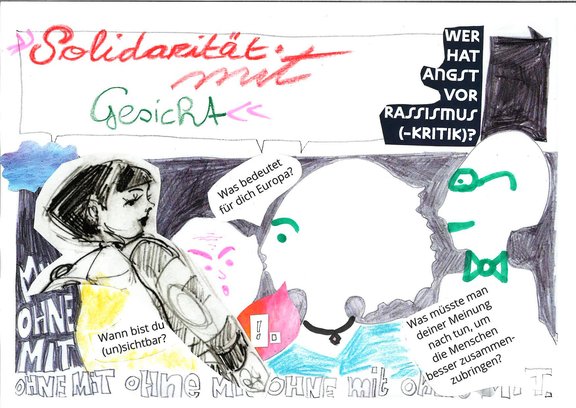 »Solidarität
mit
GesichtA«
WER
HAT
ANGST
VOR
RASSISMUS
(-KRITIK)?
Was bedeutet
für dich Europa?
Wann bist du
(un)sichtbar?
!.
Was müsste man
deiner Meinung
nach tun, um
die Menschen
besser zusammen-
zubringen?
MIT
OHNE
MIT
OHNE MIT ohne MIT OHNE mit ohne MIT